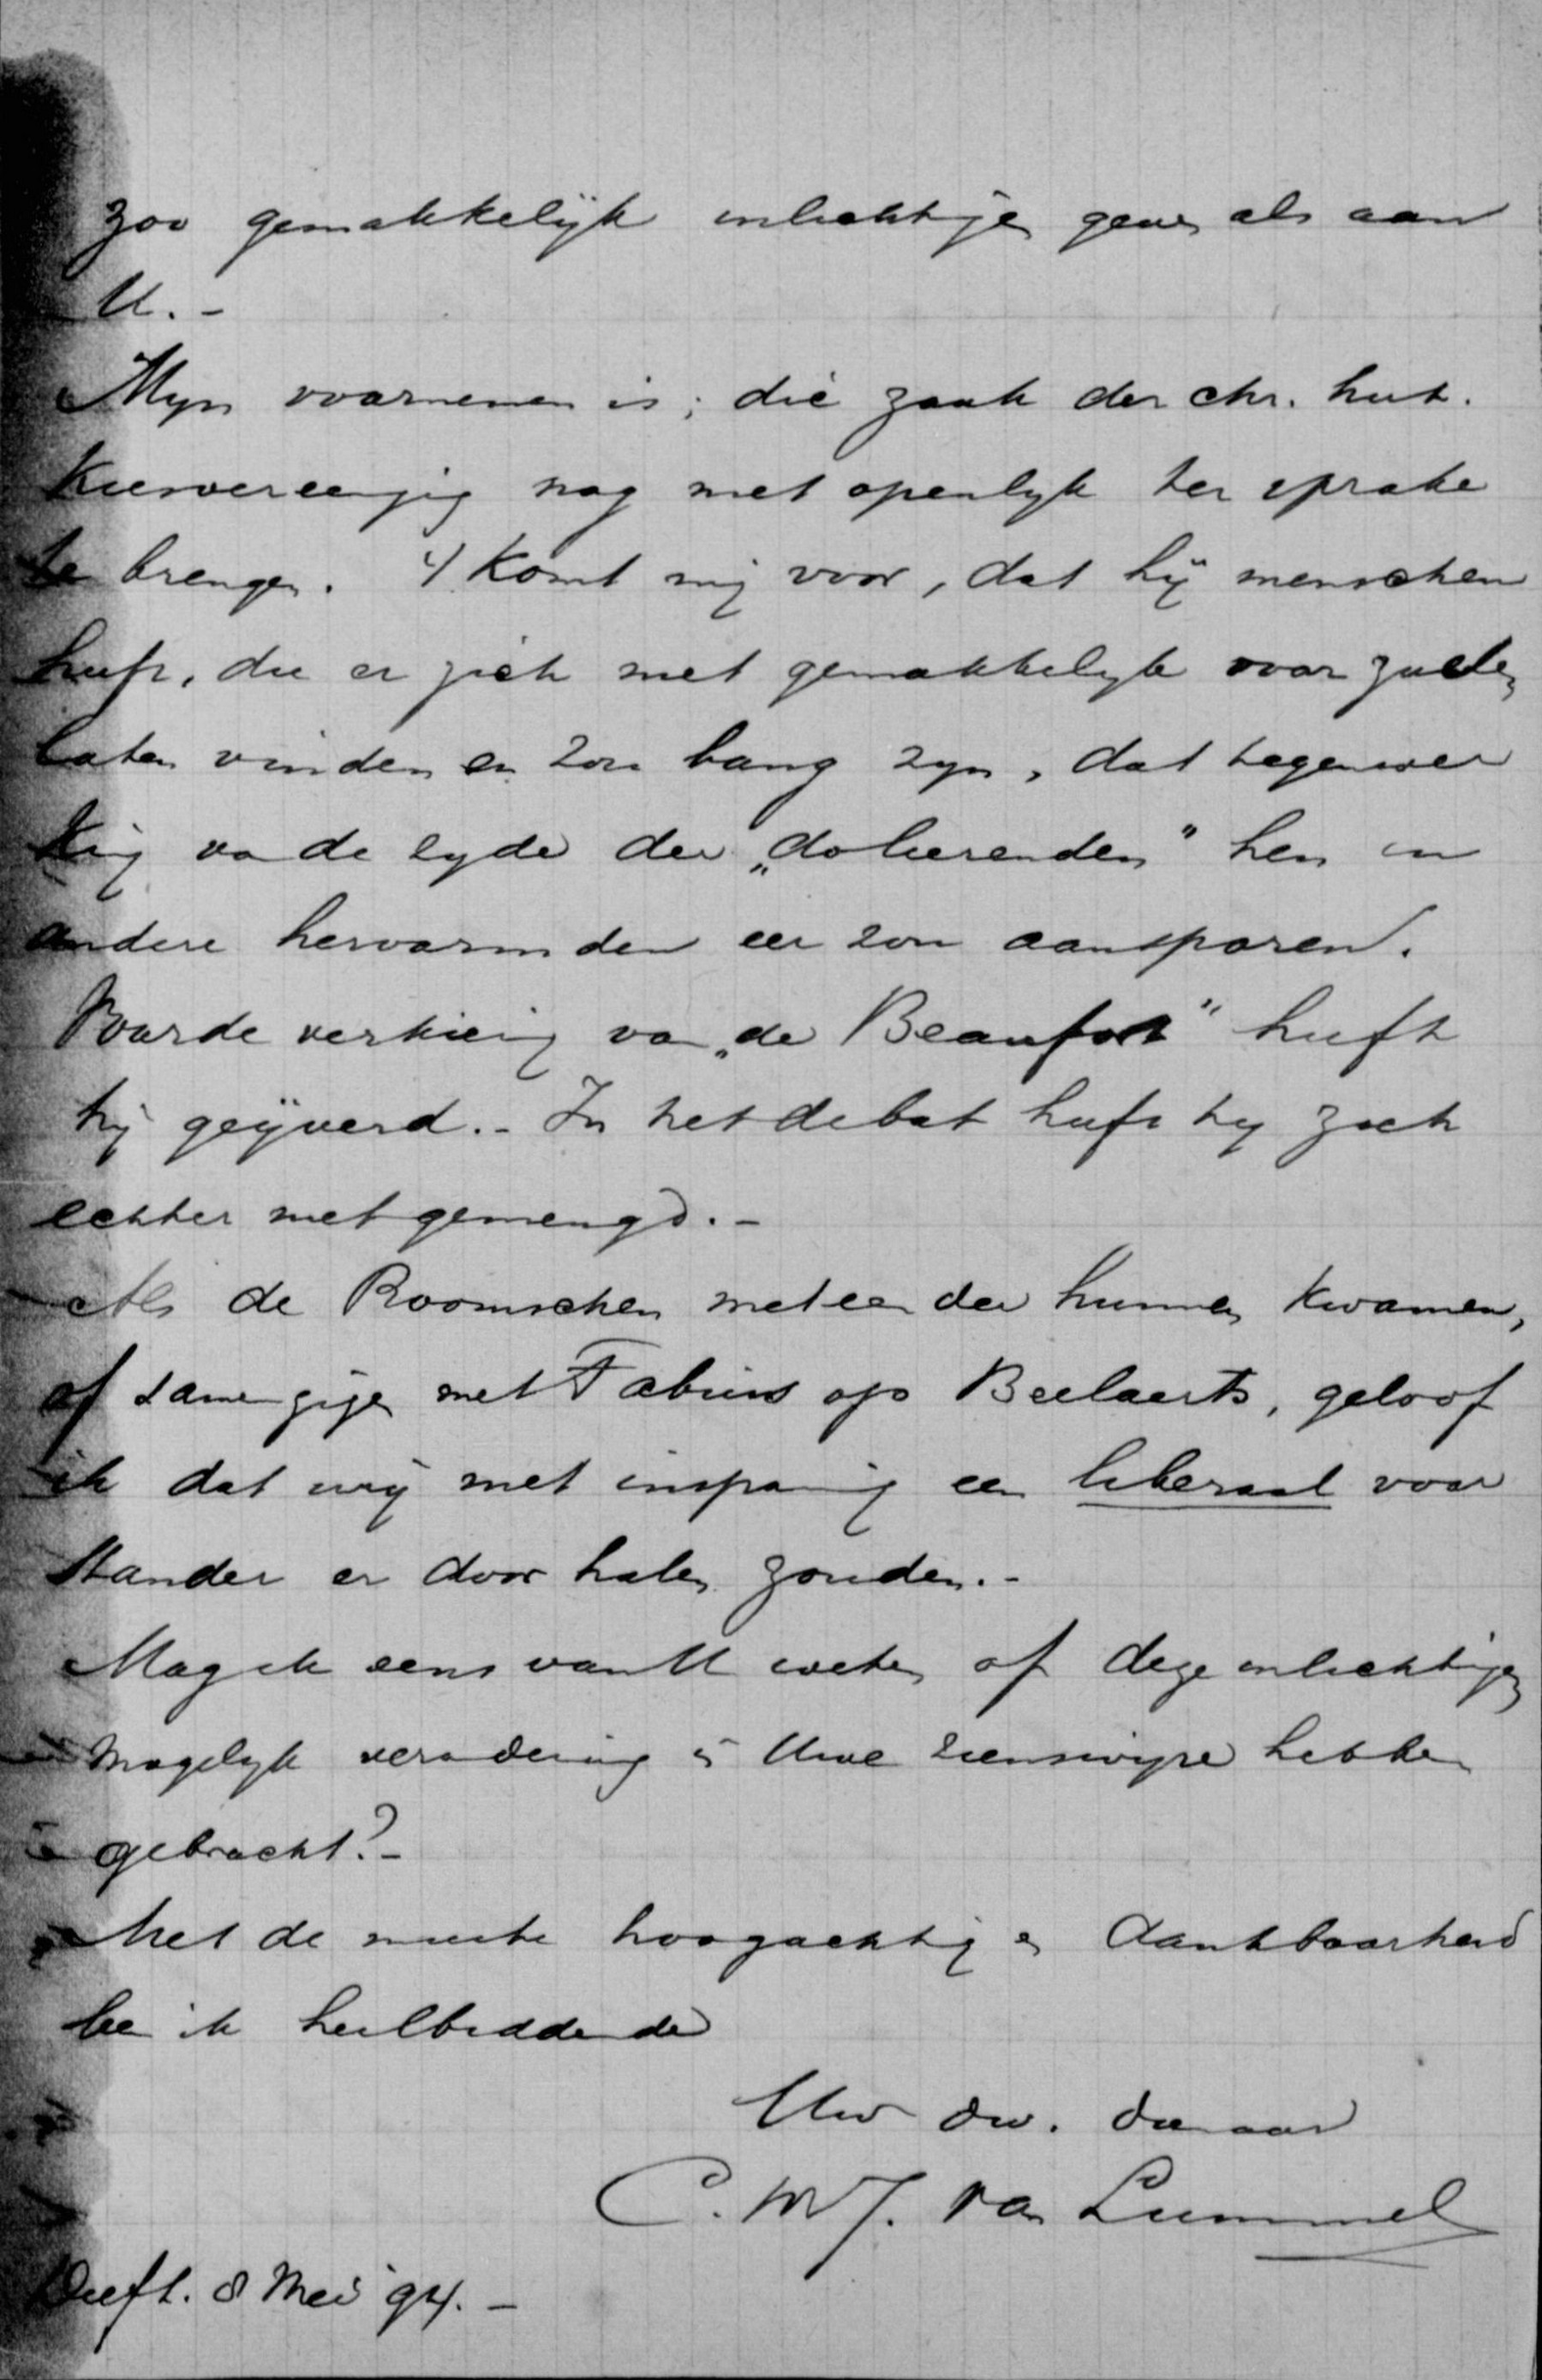 zoo gemakkelijk inlichtingen geven als aan
U. -
Mijn voornemen is; die zaak der chr. hist.
Kiesvereeniging nog niet openlijk ter sprake
te brengen. 't Komt mij voor, dat hij menschen
heeft, die er zich niet gemakkelijk voor zullen
laten vinden en zou bang zijn, dat tegenwer
king van de zyde der „doleerenden" hen en
andere hervormden eer zou aansporen.
Voor de verkiezing van „de Beaufort" heeft
hij geijverd. - In het debat heeft hij zich
echter niet gemengd. -
Als de Roomschen met een der hunnen kwamen,
of samengingen met Fabius op Beelaerts, geloof
ik dat wij met inspanning een liberaal voor
stander er door halen zouden. -
Mag ik eens van U weten of deze inlichtingen
mogelijk verandering in Uwe zienswijze hebben
gebracht? -
Met de meeste hoogachting en dankbaarheid
ben ik heilbiddende
Uw dw. dienaar
C. M. J. van Lummel
Delft. 8 Mei 94. -